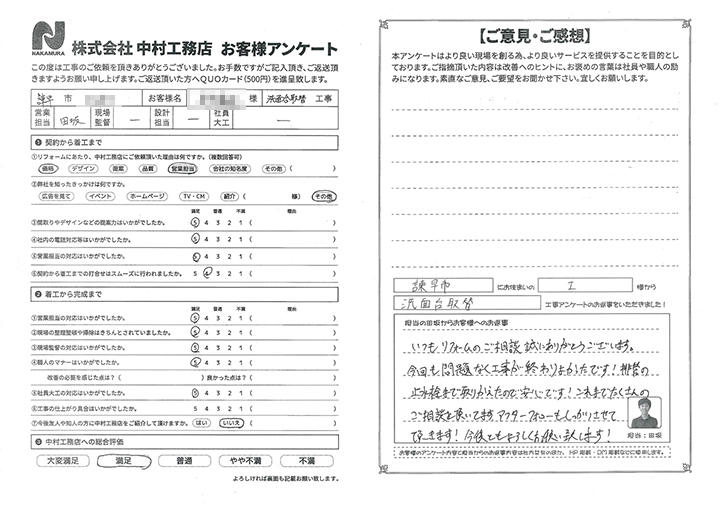 NAKAMURA
株式会社 中村工務店 お客様アンケート
この度は工事のご依頼を頂きありがとうございました。お手数ですがご記入頂き、ご返送頂
きますようお願い申し上げます。ご返送頂いた方へQUOカード(500円)を進呈致します。
諫早 市 お客様名 様 洗面台取替 工事
営業担当 田坂 現場監督 ー 設計担当 ー 社員大工 ー
❶ 契約から着工まで
①リフォームにあたり、中村工務店にご依頼頂いた理由は何ですか。(複数回答可)
価格 デザイン 提案 品質 営業担当 会社の知名度 その他( )
②弊社を知ったきっかけは何ですか。
広告を見て イベント ホームページ TV・CM 紹介( 様) その他
満足 普通 不満 理由
③間取りやデザインなどの提案力はいかがでしたか。 5 4 3 2 1 (
④社内の電話対応等はいかがでしたか。 5 4 3 2 1 (
⑤営業担当の対応はいかがでしたか。 5 4 3 2 1 (
⑥契約から着工までの打合せはスムーズに行われました。 5 4 3 2 1 (
❷ 着工から完成まで
満足 普通 不満 理由
①営業担当の対応はいかがでしたか。 5 4 3 2 1 (
②現場の整理整頓や掃除はきちんとされていましたか。 5 4 3 2 1 (
③現場監督の対応はいかがでしたか。 5 4 3 2 1 (
④職人のマナーはいかがでしたか。 5 4 3 2 1 (
改善の必要を感じた点は?( )良かった点は?( )
⑤社員大工の対応はいかがでしたか。 5 4 3 2 1 (
⑥工事の仕上がり具合はいかがですか。 5 4 3 2 1 (
⑦今後友人や知人の方に中村工務店をご紹介して頂けますか。 はい いいえ (
❸ 中村工務店への総合評価
大変満足 満足 普通 やや不満 不満
よろしければ裏面も記載お願い致します。
【ご意見・ご感想】
本アンケートはより良い現場を創る為、より良いサービスを提供することを目的とし
ております。ご指摘頂いた内容は改善へのヒントに、お褒めの言葉は社員や職人の励
みになります。素直なご意見、ご要望をお聞かせ下さい。宜しくお願いします。
諫早市 にお住まいの I 様から
洗面台取替 工事アンケートのお返事をいただきました!
担当の田坂からお客様へのお返事
いつもリフォームのご相談誠にありがとうございます。
今回も問題なく工事が終わりよかったです!
止水栓まで取りかえたので安心です!これまでたくさんの
ご相談を頂いてます アフターフォローもしっかりさせて
頂きます!今後ともよろしくお願い致します!
担当:田坂
お客様のアンケート内容と担当からのお返事内容は社内掲示のほか、HP掲載・DM掲載などに使用します。